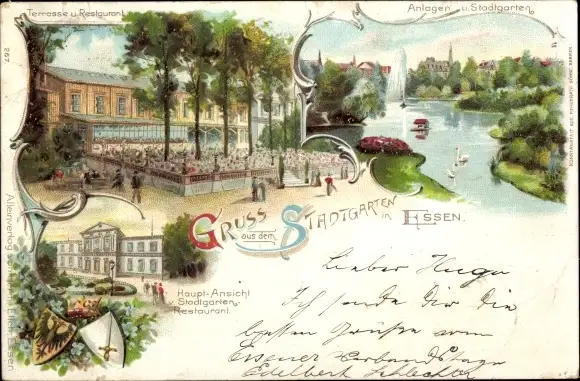 Terrasse u. Restaurant.
Anlagen u. Stadtgarten.
267
GRUSS
aus dem
STADTGARTEN
in ESSEN.
Haupt-Ansicht
v. Stadtgarten-
Restaurant.
Lieber Hugo
Ich sende Dir die
besten Grüsse vom
Essener Verbandstage
Edelbert Schlechter